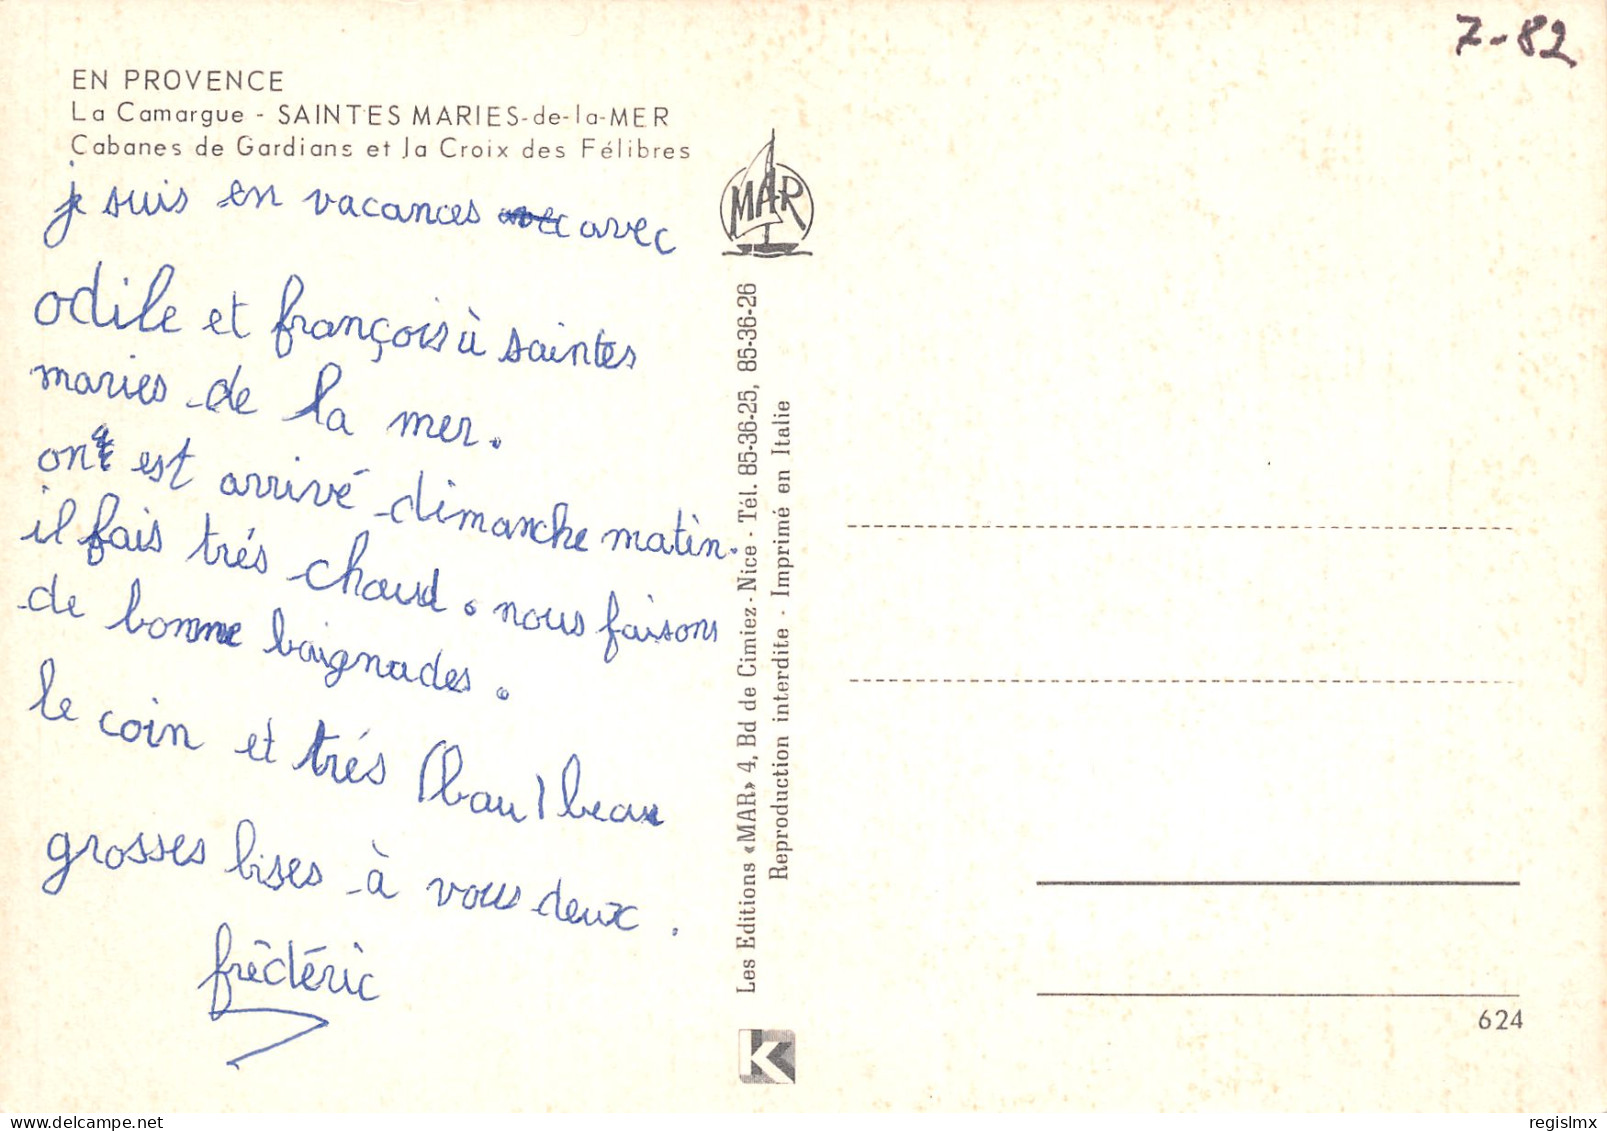 7-82
EN PROVENCE
La Camargue - SAINTES MARIES-de-la-MER
Cabanes de Gardians et la Croix des Félibres
je suis en vacances avec avec
odile et françois à saintes
maries de la mer.
on est arrivé dimanche matin.
il fais trés chaud. nous faisons
de bonne baignades.
le coin et trés (bau) beau
grosses bises à vous deux.
frédéric
MAR
Les Editions «MAR» 4, Bd de Cimiez - Nice - Tél. 85-36-25, 85-36-26
Reproduction interdite - Imprimé en Italie
K
624
www.delcampe.net
regislmx